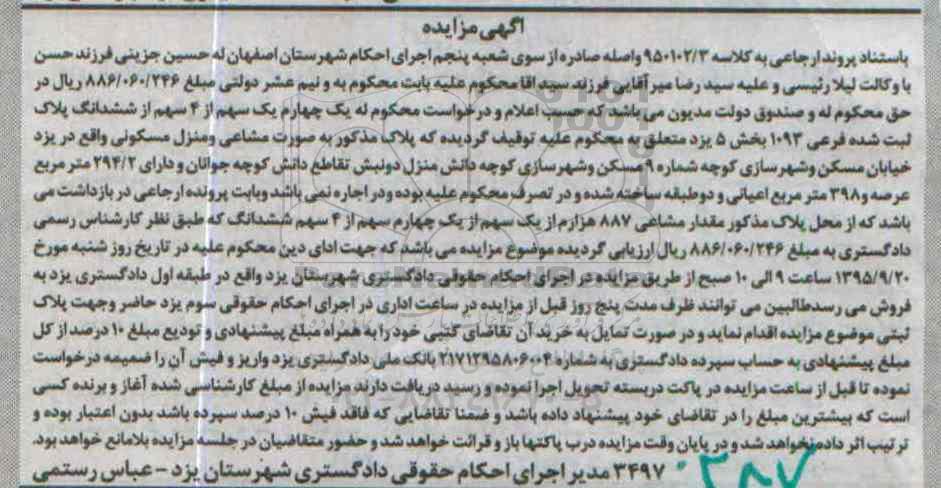 آگهی مزایده
باستناد پرونده ارجاعی به کلاسه ۹۵۰۱۰۲/۳ واصله صادره از سوی شعبه پنجم اجرای احکام شهرستان اصفهان له حسین جزینی فرزند حسن
با وکالت لیلا رئیسی و علیه سید رضا میرآقایی فرزند سید اقا محکوم علیه بابت محکوم به و نیم عشر دولتی مبلغ ۸۸۶/۰۶۰/۲۴۶ ریال در
حق محکوم له و صندوق دولت مدیون می باشد که حسب اعلام و درخواست محکوم له یک چهارم یک سهم از ۴ سهم از ششدانگ پلاک
ثبت شده فرعی ۱۰۹۳ بخش ۵ یزد متعلق به محکوم علیه توقیف گردیده که پلاک مذکور به صورت مشاعی ومنزل مسکونی واقع در یزد
خیابان مسکن وشهرسازی کوچه شماره ۹ مسکن وشهرسازی کوچه دانش منزل دونبش تقاطع دانش کوچه جوانان و دارای ۲۹۴/۲ متر مربع
عرصه و ۳۹۸ متر مربع اعیانی و دوطبقه ساخته شده و در تصرف محکوم علیه بوده ودر اجاره نمی باشد وبابت پرونده ارجاعی در بازداشت می
باشد که از محل پلاک مذکور مقدار مشاعی ۸۸۷ هزارم از یک سهم از یک چهارم سهم از ۴ سهم ششدانگ که طبق نظر کارشناس رسمی
دادگستری به مبلغ ۸۸۶/۰۶۰/۲۴۶ ریال ارزیابی گردیده موضوع مزایده می باشد که جهت ادای دین محکوم علیه در تاریخ روز شنبه مورخ
۱۳۹۵/۹/۲۰ ساعت ۹ الی ۱۰ صبح از طریق مزایده در اجرای احکام حقوقی دادگستری شهرستان یزد واقع در طبقه اول دادگستری یزد به
فروش می رسد طالبین می توانند ظرف مدت پنج روز قبل از مزایده در ساعت اداری در اجرای احکام حقوقی سوم یزد حاضر وجهت پلاک
ثبتی موضوع مزایده اقدام نماید و در صورت تمایل به خرید آن تقاضای کتبی خود را به همراه مبلغ پیشنهادی و تودیع مبلغ ۱۰ درصد از کل
مبلغ پیشنهادی به حساب سپرده دادگستری به شماره ۲۱۷۱۲۹۵۸۰۶۰۰۴ بانک ملی دادگستری یزد واریز و فیش آن را ضمیمه درخواست
نموده تا قبل از ساعت مزایده در پاکت دربسته تحویل اجرا نموده و رسید دریافت دارند مزایده از مبلغ کارشناسی شده آغاز و برنده کسی
است که بیشترین مبلغ را در تقاضای خود پیشنهاد داده باشد و ضمنا تقاضایی که فاقد فیش ۱۰ درصد سپرده باشد بدون اعتبار بوده و
ترتیب اثر داده نخواهد شد و در پایان وقت مزایده درب پاکتها باز و قرائت خواهد شد و حضور متقاضیان در جلسه مزایده بلامانع خواهد بود.
۳۴۹۷ مدیر اجرای احکام حقوقی دادگستری شهرستان یزد - عباس رستمی